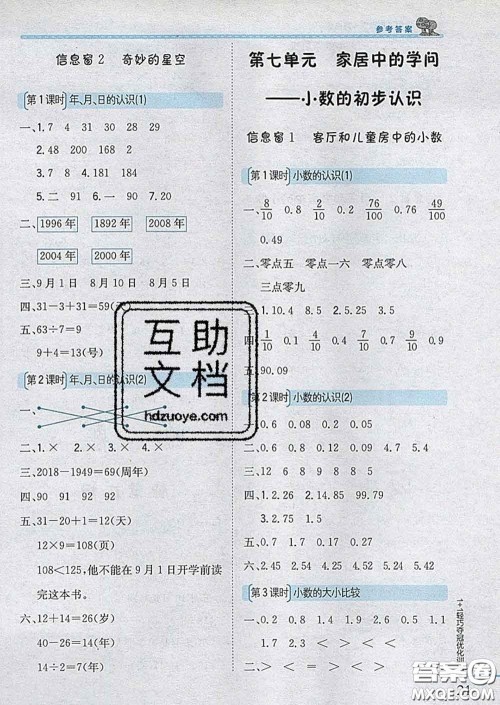 参考答案
信息窗2 奇妙的星空
第1课时 年、月、日的认识(1)
一、1.7 4 31 30 28 29
2.48 200 168 2
3.4 181 184
5.二 91 一 90 7.20
二、1996年 1892年 2008年
2004年 2000年
三、9月1日 8月8日 8月5日
四、31-3+31=59(天)
五、63÷7=9
9+4=13(号)
第2课时 年、月、日的认识(2)
一、
二、1.× 2.× 4.×
三、2018-1949=69(周年)
四、90 91 92 92
五、31-20+1=12(天)
12×9=108(页)
108<125,他不能在9月1日开学前读
完这本书。
六、12+14=26(岁)
40-26=14(岁)
14÷2=7(年)
第七单元 家居中的学问
——小数的初步认识
信息窗1 客厅和儿童房中的小数
第1课时 小数的认识(1)
一、8/10 0.8 2/10 0.2 76/100 0.76 49/100
0.49
二、零点五 零点一六 零点零八
三点零九
三、1.0.4 8.5 2.4.15
四、1/10 0.1 4/10 0.4 7/10 0.7 9/10 0.9
五、90.09
第2课时 小数的认识(2)
二、0.6 8 0.8 9 0.9
四、1.2.26 1.54 1.85 2.99.99
3.0.75
五、0.2 1.7 1.9 2.5 2.9
六、2.45
第3课时 小数的大小比较
一、0.7 < 1.1 1.3 < 1.8
1+1轻巧夺冠优化训
答案圈
MXQE.COM
互助
文档
hdzuoye.com